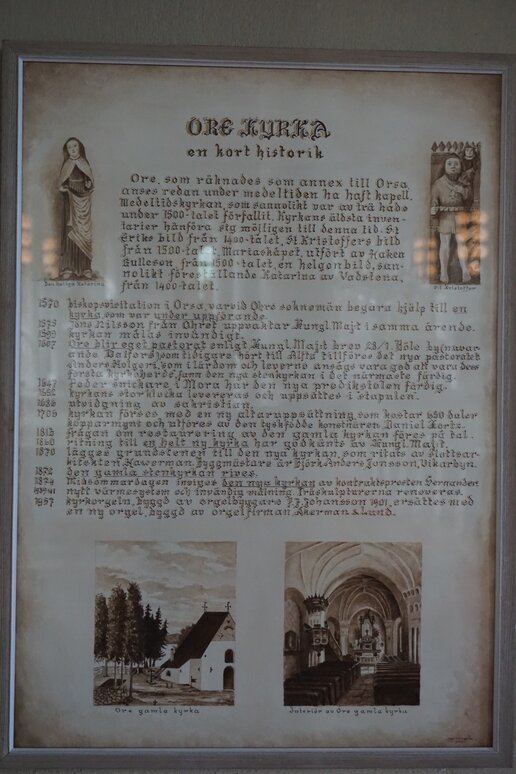 ORE KYRKA
en kort historik
Ore, som räknades som annex till Orsa,
anses redan under medeltiden ha haft kapell.
Medeltidskyrkan, som sannolikt var av trä hade
under 1500-talet förfallit. Kyrkans äldsta inven-
tarier hänföra sig möjligen till denna tid. St
Eriks bild från 1400-talet, St Kristoffers bild
från 1500-talet, Mariaskåpet, utfört av Haken
Gulleson från 1500-talet, en helgonbild, san-
nolikt föreställande Katarina av Vadstena,
från 1400-talet.
Den heliga Katarina
S:t Kristoffer
1570 biskopsvisitation i Orsa, varvid Ohre soknemän begära hjälp till en
kyrka som var under uppförande.
Jöns Nilsson från Ohret uppvaktar Kungl Majt i samma ärende.
kyrkan målas invändigt.
1607 Ore blir eget pastorat enligt Kungl Majt brev
Dalfors som tidigare hört till Alfta tillföres det nya pastoratet
Anders Holgeri, som i lärdom och leverne ansågs vara god att vara dess
förste kyrkoherde, fann den nya stenkyrkan i det närmaste färdig.
1647 Peder snickare i Mora hur den nya predikstolen färdig.
kyrkans storklocka levereras och uppsättes i stapulen.
1686 utvidgning av sakristian.
1706 kyrkan förses med en ny altaruppsättning, som kostar 650 daler
kopparmynt och utföres av den tyskfödde konstnären Daniel
1813 frågan om restaurering av den gamla kyrkan föres på tal.
1860 ritning till en helt ny kyrka har godkänts av Kungl. Majt.
1870 lägges grundstenen till den nya kyrkan, som ritats av slottsar-
kitekten Hawerman. Byggmästare är Björk Anders Jonsson, Vikarbyn.
1872 den gamla stenkyrkan rives.
1874 Midsommardagen inviges den nya kyrkan av kontraktsprosten Fernander.
nytt värmesystem och invändig målning. Träskulpturerna renoveras.
1957 kyrkorgeln, byggd av orgelbyggare P.J. Johansson 1901, ersättes med
en ny orgel, byggd av orgelfirman Åkerman & Lund.
Ore gamla kyrka
Interiör av Ore gamla kyrka